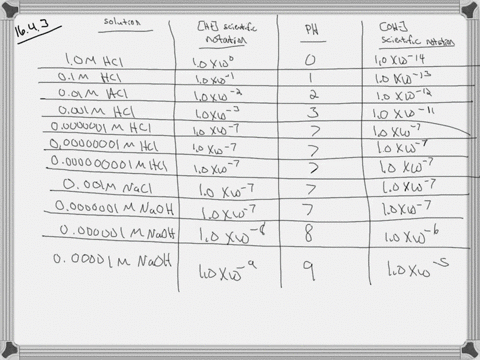 16.4.3
solution [H+] scientific notation PH [OH-] scientific notation
1.0M HCl 1.0 x10^0 0 1.0 x10^-14
0.1M HCl 1.0 x10^-1 1 1.0 x10^-13
0.01M HCl 1.0 x10^-2 2 1.0 x10^-12
0.001M HCl 1.0 x10^-3 3 1.0 x10^-11
0.0000001M HCl 1.0 x10^-7 7 1.0 x10^-7
0.00000001M HCl 1.0 x10^-7 7 1.0 x10^-7
0.000000001M HCl 1.0 x10^-7 7 1.0 x10^-7
0.001M NaCl 1.0 x10^-7 7 1.0 x10^-7
0.0000001M NaOH 1.0 x10^-7 7 1.0 x10^-7
0.000001M NaOH 1.0 x10^-8 8 1.0 x10^-6
0.00001M NaOH 1.0 x10^-9 9 1.0 x10^-5